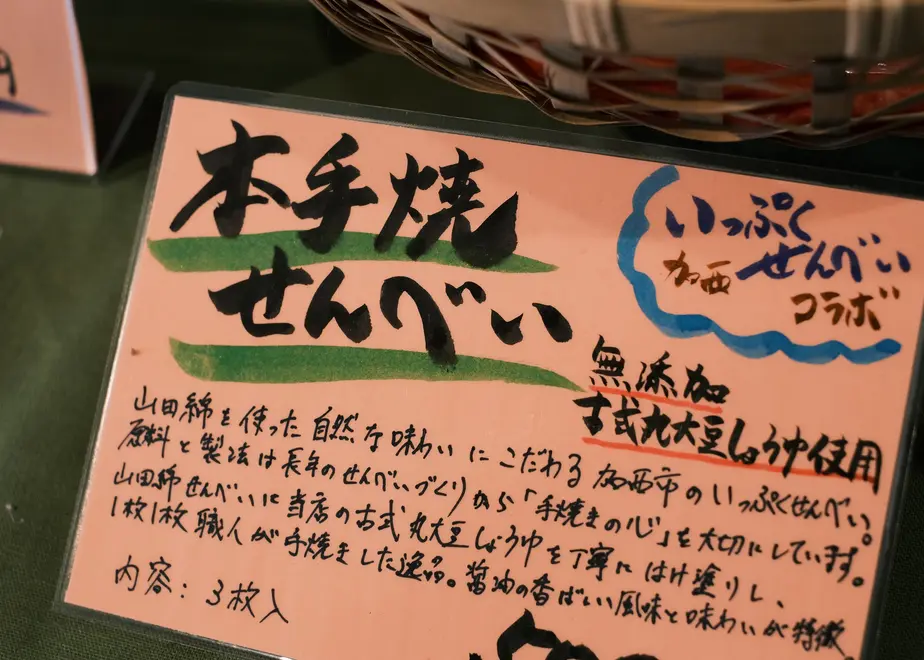 本手焼
せんべい
いっぷく
加西 せんべい
コラボ
無添加
古式丸大豆しょうゆ使用
山田錦を使った自然な味わいにこだわる加西市のいっぷくせんべい。
原料と製法は長年のせんべいづくりから「手焼きの心」を大切にしています。
山田錦せんべいに当店の古式丸大豆しょうゆを丁寧にはけ塗りし、
1枚1枚職人が手焼きした逸品。醤油の香ばしい風味と味わいが特徴
内容：3枚入